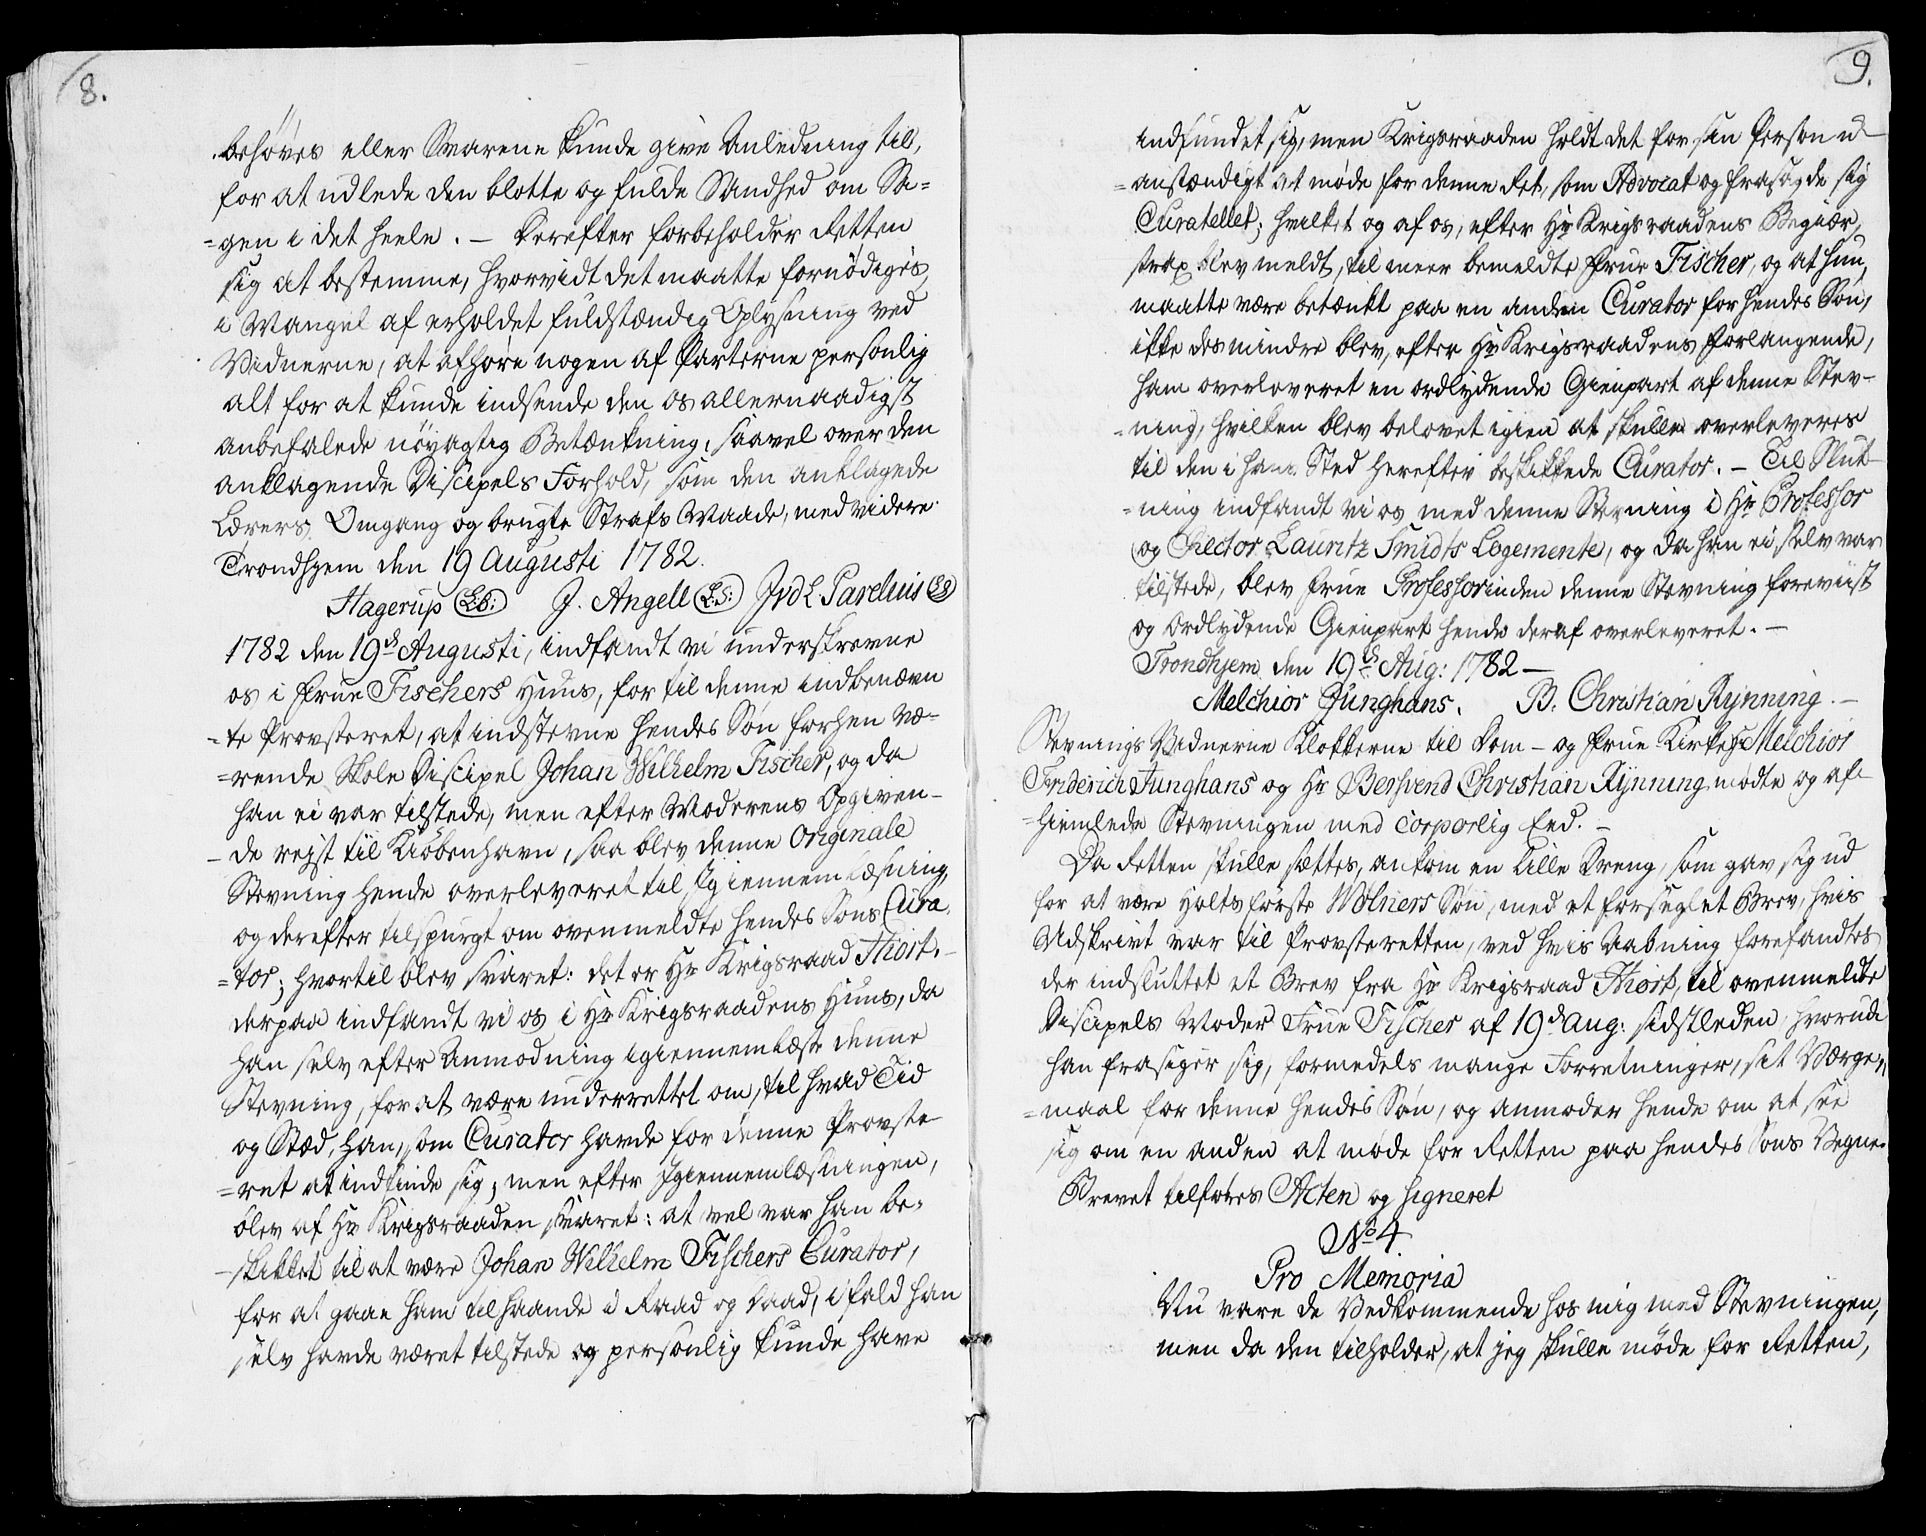 8.
behøves eller Svarene kunde give Anledning til,
for at udlede den blotte og fulde Sandhed om Sa=
=gen i det heele. – Derefter forbeholder Retten
sig at bestemme, hvorvidt det maatte fornødiges,
i Mangel af erholdet fuldstændig Oplysning ved
Vidnerne, at afhøre nogen af Parterne personlig
alt for at kunde indsende den os allernaadigst
anbefalede nöyagtig Betænkning, saavel over den
anklagende Discipels Forhold, som den anklagede
Lærers Omgang og brugte Strafs Maade, med videre
Trondhjem den 19 Augusti 1782.
Hagerup (L.S:) J. Angell (L:S:) Parelius (LS)
1782 den 19de Augusti, indfandt vi underskrevne
os i Frue Fischers Huus, for til denne indbenævn
=te Provsteret, at indstevne hendes Søn forhen væ=
=rende Skole Discipel Johan Wilhelm Fischer, og da
han ei var tilstede, men efter Moderens Opgiven-
-de rejst til Kiöbenhavn, saa blev denne Originale
Stevning hende overleveret til Igiennemlæsning,
og derefter tilspurgt om ovenmeldte hendes Söns Cura,
=tor; hvortil blev svaret: det er Hr Krigsraad Thiort.-
derpaa indfandt vi os i Hr Krigsraadens Huus, da
han selv efter Anmodning igiennemlæste denne
Stevning, for at være underrettet om, til hvad Tid
og Stæd, han, som Curator havde for denne Provste
=ret at indfinde sig, men efter Igiennemlæsningen,
blev af Hr Krigsraaden svaret: at vel var han be=
-skikket til at være Johan Wilhelm Fischers Curator,
for at gaae ham tilhaande i Raad og Daad, ifald han
selv havde været tilstede og personlig kunde have
9.
indfundet sig, men Krigsraaden holdt det for sin Person u-
=anstændigt at møde for denne Ret, som Advocat og frasagde sig
Curatellet; hvilket og af os, efter Hr Krigsraadens Begiær,
strax blev meldt, til meer bemeldte Frue Fischer, og at hun
maatte være betænkt paa en anden Curator for hendes Søn,
ikke desmindre blev, efter Hr Krigsraadens Forlangende,
ham overleveret en ordlydende Gienpart af denne Stev-
=ning, hvilken blev belovet igien at skulle overleveres
til den i hans Sted herefter beskikkede Curator. – Til Slut-
=ning indfandt vi os med denne Stevning i Hr Professor
og Rector Lauritz Smidts Logemente, og da han ei selv var
tilstede, blev Frue Professorinden denne Stevning foreviist
og Ordlydende Gienpart hende deraf overleveret. –
Trondhjem den 19de Aug: 1782 –
Melchior Junghans. B. Christian Rynning. –
Stevnings Vidnerne Klokkerne til Dom- og Frue Kirke Hr Melchior
Friderich Junghans og Hr Bersvend Christian Rynning mødte og af-
=hiemlede Stevningen med Corporlig Eed. –
Da Retten skulle sættes, ankom en Lille Dreng, som gav sig ud
for at være Holts første Wølners Søn, med et forseglet Brev, hvis
Udskrivt var til Provsteretten, ved hvis Aabning forefandtes
der indsluttet et Brev fra Hr Krigsraad Thiort, til ovenmeldte
Discipels Moder Frue Fischer af 19de Aug: sidstleden, hvorudi
han frasiger sig, formedels mange Forretninger, sit Værge=
=maal for denne hendes Søn, og anmoder hende om at see
sig om en anden at møde for Retten paa hendes Søns Vegne.
Brevet tilføres Acten og signeret
No 4
Pro Memoria
Nu vare de Vedkommende hos mig med Stevningen,
men da den tilholder, at jeg skulle møde for Retten,